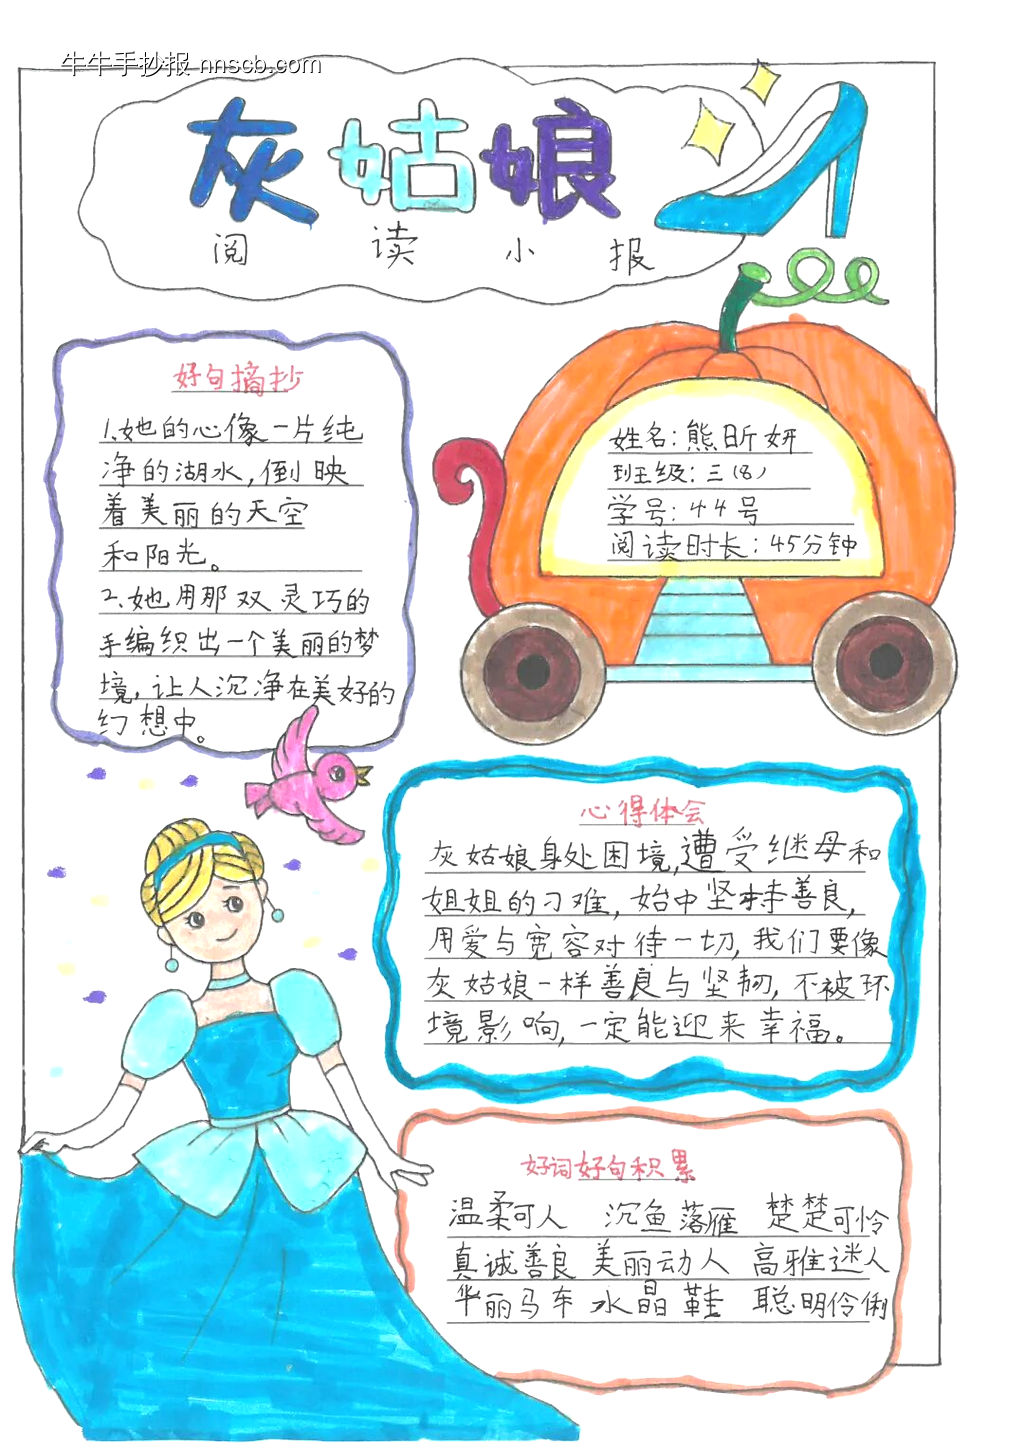 牛牛手抄报 nnscb.com
灰姑娘
阅读小报
好句摘抄
1、她的心像一片纯
净的湖水,倒映
着美丽的天空
和阳光。
2、她用那双灵巧的
手编织出一个美丽的梦
境,让人沉净在美好的
幻想中。
姓名:熊昕妍
班级:三(8)
学号:44号
阅读时长:45分钟
心得体会
灰姑娘身处困境,遭受继母和
姐姐的刁难,始中坚持善良,
用爱与宽容对待一切,我们要像
灰姑娘一样善良与坚韧,不被环
境影响,一定能迎来幸福。
好词好句积累
温柔可人 沉鱼落雁 楚楚可怜
真诚善良 美丽动人 高雅迷人
华丽马车 水晶鞋 聪明伶俐